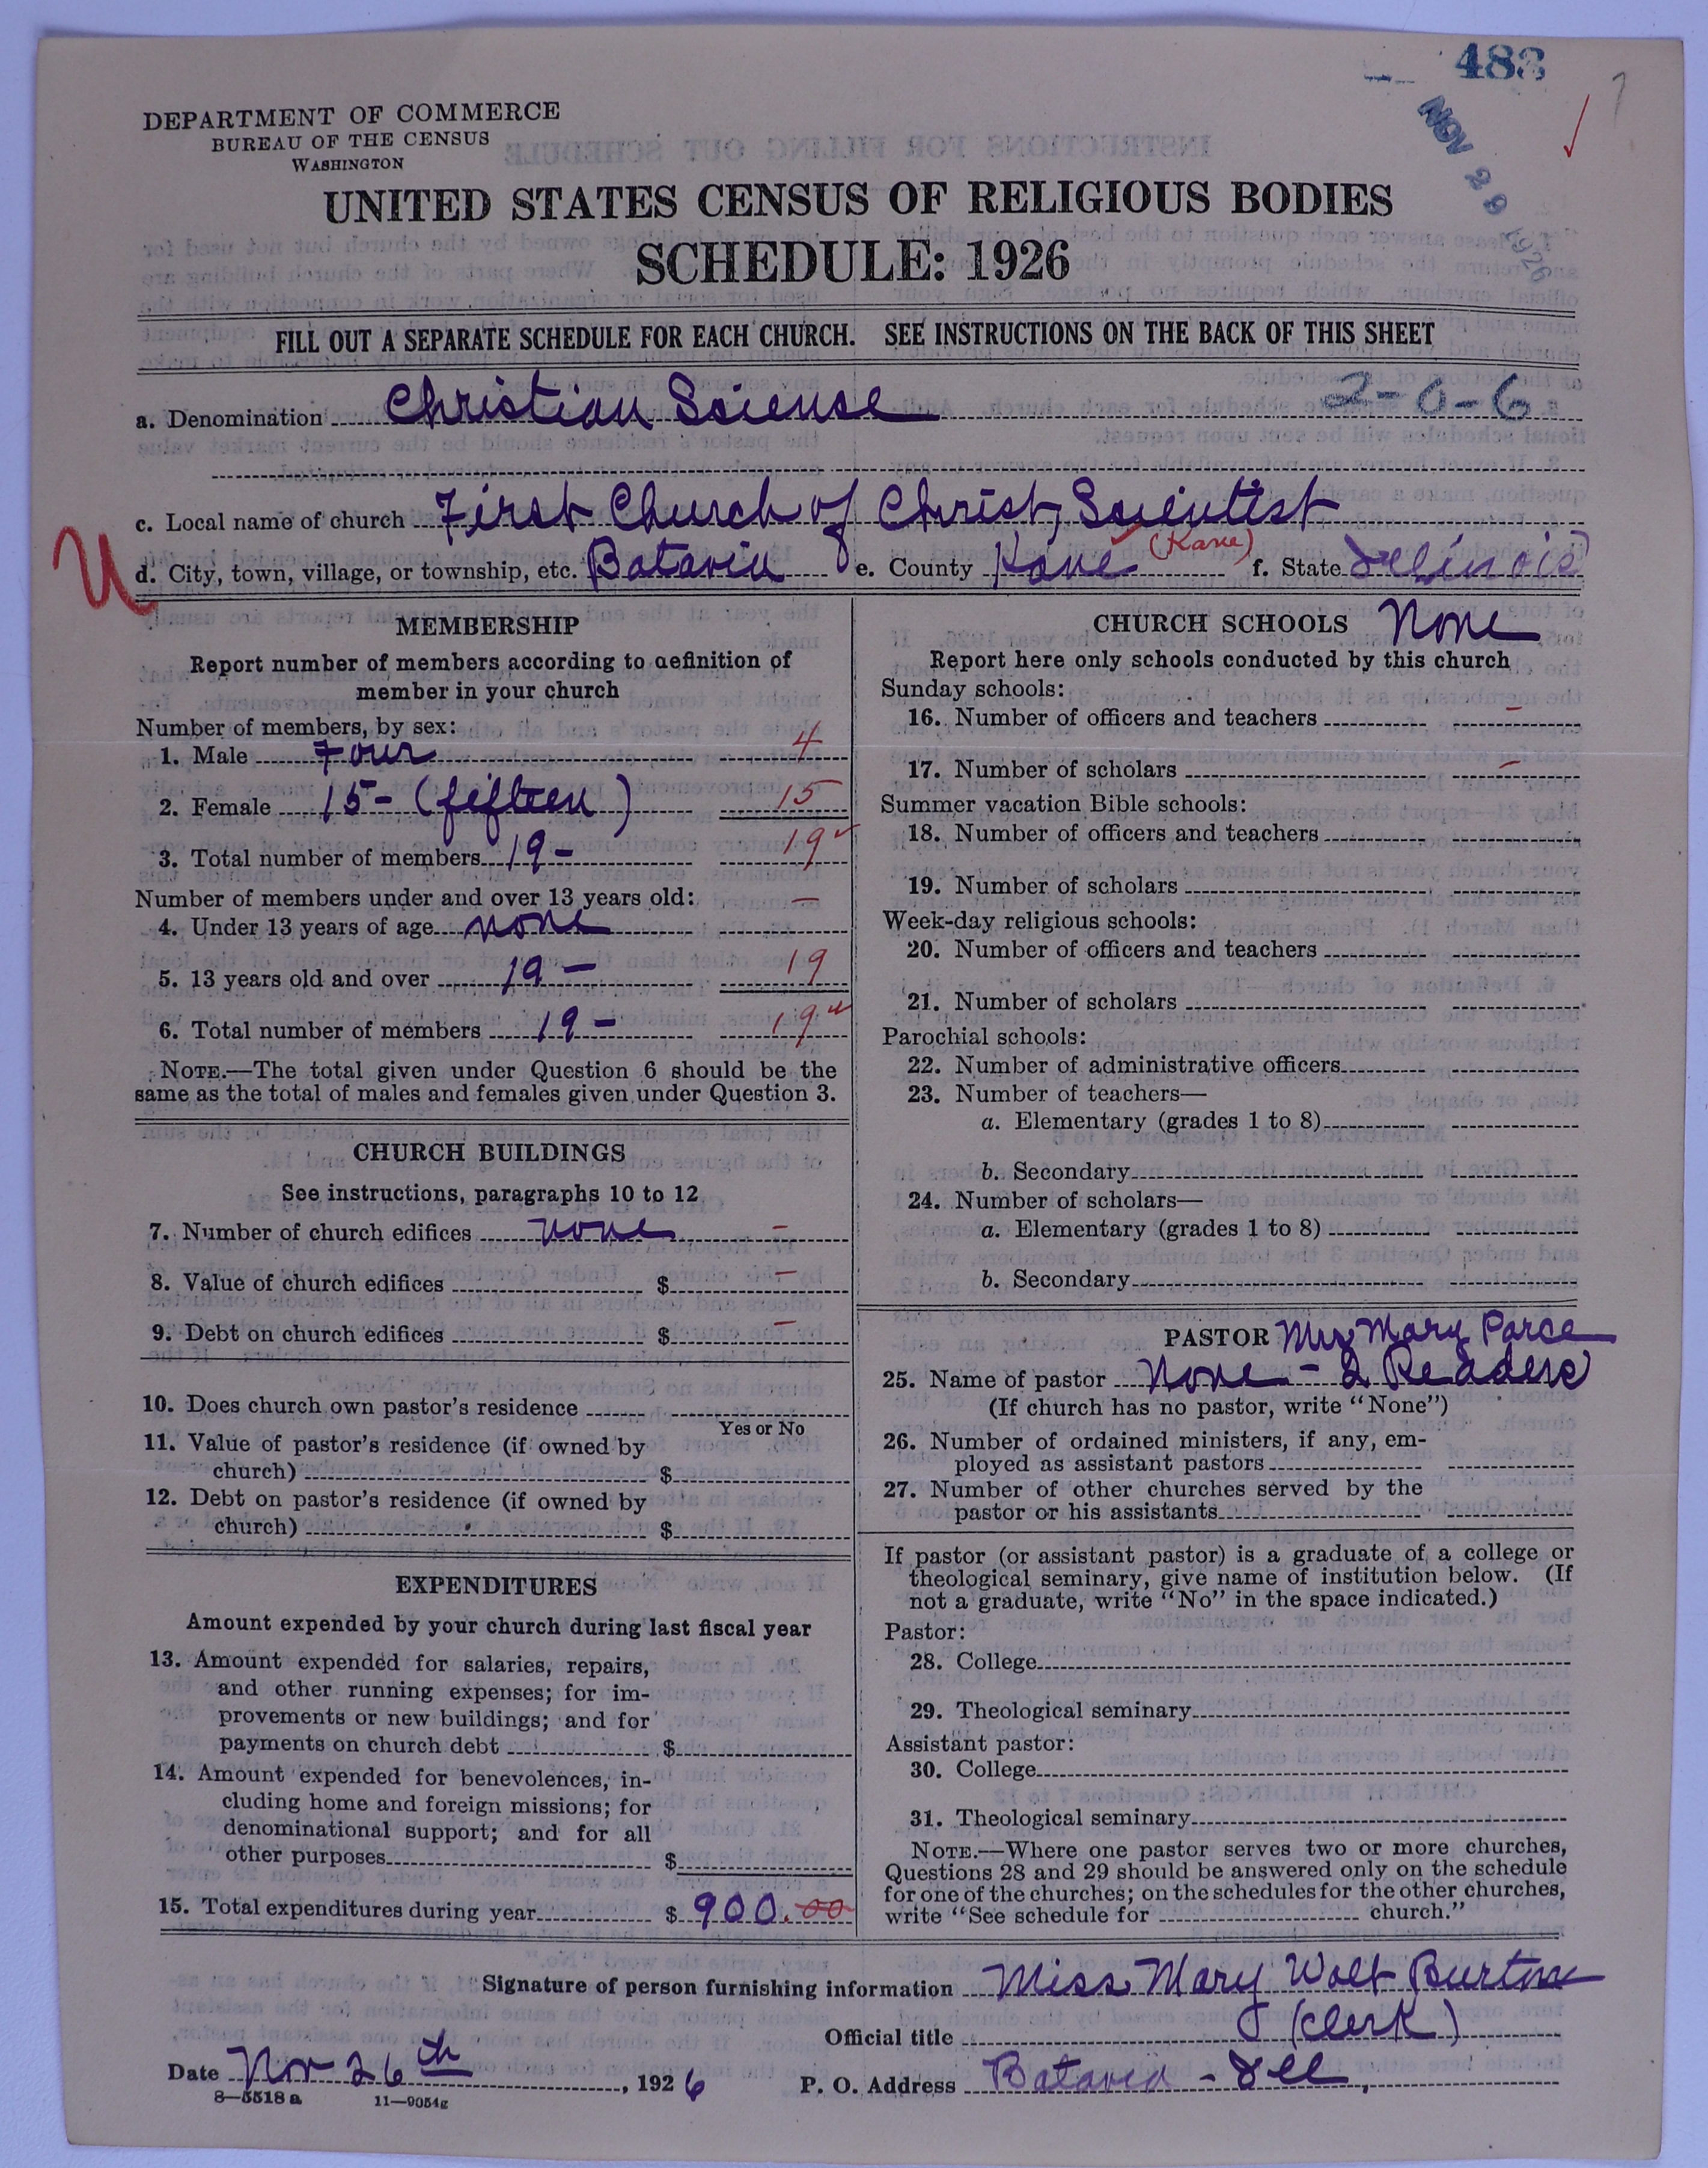 483
NOV 29 1926
DEPARTMENT OF COMMERCE
BUREAU OF THE CENSUS
WASHINGTON
UNITED STATES CENSUS OF RELIGIOUS BODIES
SCHEDULE: 1926
FILL OUT A SEPARATE SCHEDULE FOR EACH CHURCH. SEE INSTRUCTIONS ON THE BACK OF THIS SHEET
a. Denomination Christian Science 2-0-6
c. Local name of church First Church of Christ, Scientist
U
d. City, town, village, or township, etc. Batavia e. County Kane (Kane) f. State Illinois
MEMBERSHIP
Report number of members according to definition of
member in your church
Number of members, by sex:
1. Male Four 4
2. Female 15- (fifteen) 15
3. Total number of members 19- 19
Number of members under and over 13 years old:
4. Under 13 years of age none -
5. 13 years old and over 19- 19
6. Total number of members 19- 19
NOTE.—The total given under Question 6 should be the
same as the total of males and females given under Question 3.
CHURCH BUILDINGS
See instructions, paragraphs 10 to 12
7. Number of church edifices none -
8. Value of church edifices $ -
9. Debt on church edifices $ -
10. Does church own pastor's residence
Yes or No
11. Value of pastor's residence (if owned by
church) $
12. Debt on pastor's residence (if owned by
church) $
EXPENDITURES
Amount expended by your church during last fiscal year
13. Amount expended for salaries, repairs,
and other running expenses; for im-
provements or new buildings; and for
payments on church debt $
14. Amount expended for benevolences, in-
cluding home and foreign missions; for
denominational support; and for all
other purposes $
15. Total expenditures during year $ 900.00
CHURCH SCHOOLS None
Report here only schools conducted by this church
Sunday schools:
16. Number of officers and teachers -
17. Number of scholars -
Summer vacation Bible schools:
18. Number of officers and teachers
19. Number of scholars
Week-day religious schools:
20. Number of officers and teachers
21. Number of scholars
Parochial schools:
22. Number of administrative officers
23. Number of teachers—
a. Elementary (grades 1 to 8)
b. Secondary
24. Number of scholars—
a. Elementary (grades 1 to 8)
b. Secondary
PASTOR Mrs Mary Parce
25. Name of pastor None - 2 Readers
(If church has no pastor, write "None")
26. Number of ordained ministers, if any, em-
ployed as assistant pastors
27. Number of other churches served by the
pastor or his assistants
If pastor (or assistant pastor) is a graduate of a college or
theological seminary, give name of institution below. (If
not a graduate, write "No" in the space indicated.)
Pastor:
28. College
29. Theological seminary
Assistant pastor:
30. College
31. Theological seminary
NOTE.—Where one pastor serves two or more churches,
Questions 28 and 29 should be answered only on the schedule
for one of the churches; on the schedules for the other churches,
write "See schedule for church."
Signature of person furnishing information Miss Mary Wolf Burton
Official title (clerk)
Date Nov 26th, 1926 P. O. Address Batavia - Ill.
8—5518a 11—9054g